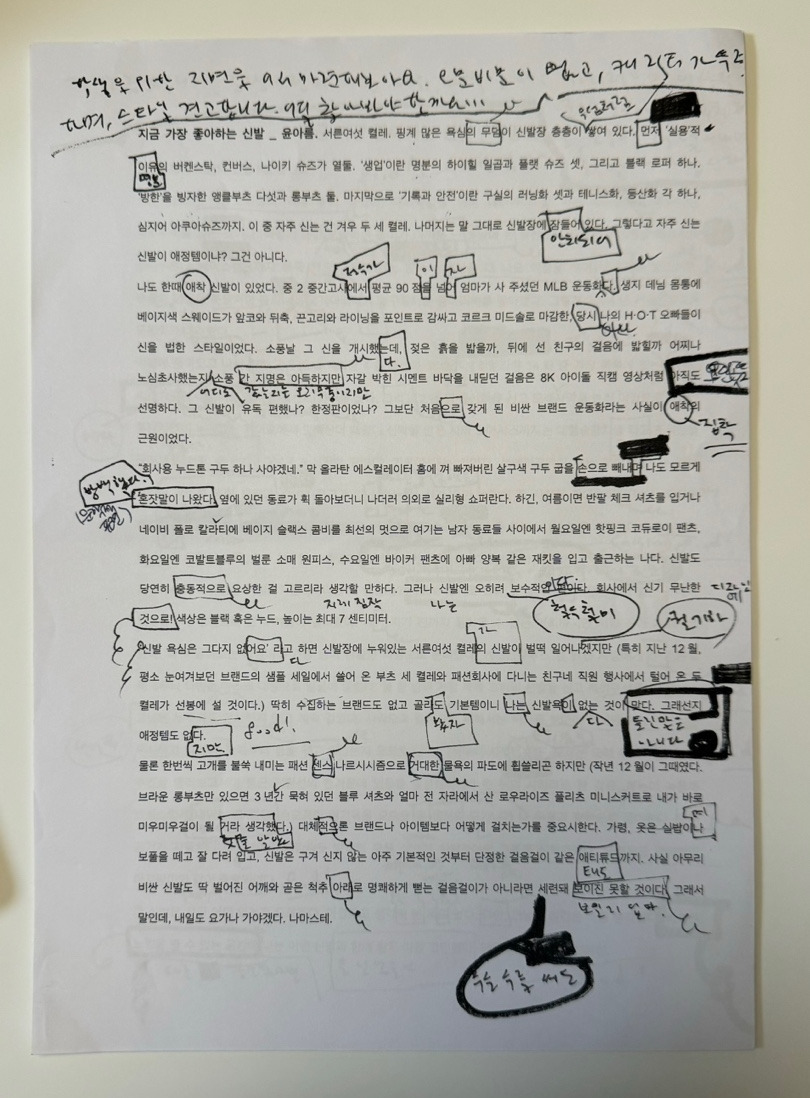 학생을 위한 지면을 어서 마련해보아요. 오탈비문이 없고, 캐릭터가 뚜렷
하며, 스타일 견고합니다. 어딜 할까요...
지금 가장 좋아하는 신발 _ 윤아름. 서른여섯 켤레. 핑계 많은 욕심의 무덤이 신발장 층층이 쌓여 있다. 먼저 '실용'적
이유의 버켄스탁, 컨버스, 나이키 슈즈가 열둘. '생업'이란 명분의 하이힐 일곱과 플랫 슈즈 셋, 그리고 블랙 로퍼 하나.
명분
'방한'을 빙자한 앵클부츠 다섯과 롱부츠 둘. 마지막으로 '기록과 안전'이란 구실의 러닝화 셋과 테니스화, 등산화 각 하나,
심지어 아쿠아슈즈까지. 이 중 자주 신는 건 겨우 두 세 켤레. 나머지는 말 그대로 신발장에 잠들어 있다. 그렇다고 자주 신는
안치되어
신발이 애정템이냐? 그건 아니다.
이
나도 한때 애착 신발이 있었다. 중 2 중간고사에서 평균 90 점을 넘어 엄마가 사 주셨던 MLB 운동화다. 생지 데님 몸통에
베이지색 스웨이드가 앞코와 뒤축, 끈고리와 라이닝을 포인트로 감싸고 코르크 미드솔로 마감한, 당시 나의 H·O·T 오빠들이
신을 법한 스타일이었다. 소풍날 그 신을 개시했는데, 젖은 흙을 밟을까, 뒤에 선 친구의 걸음에 밟힐까 어찌나
다.
노심초사했는지 소풍 간 지명은 아득하지만 자갈 박힌 시멘트 바닥을 내딛던 걸음은 8K 아이돌 직캠 영상처럼 아직도
선명하다. 그 신발이 유독 편했나? 한정판이었나? 그보단 처음으로 갖게 된 비싼 브랜드 운동화라는 사실이 애착의
집착
근원이었다.
"회사용 누드톤 구두 하나 사야겠네." 막 올라탄 에스컬레이터 홈에 껴 빠져버린 살구색 구두 굽을 손으로 빼내며 나도 모르게
방백했다.
혼잣말이 나왔다. 옆에 있던 동료가 휙 돌아보더니 나더러 의외로 실리형 쇼퍼란다. 하긴, 여름이면 반팔 체크 셔츠를 입거나
네이비 폴로 칼라티에 베이지 슬랙스 콤비를 최선의 멋으로 여기는 남자 동료들 사이에서 월요일엔 핫핑크 코듀로이 팬츠,
화요일엔 코발트블루의 벌룬 소매 원피스, 수요일엔 바이커 팬츠에 아빠 양복 같은 재킷을 입고 출근하는 나다. 신발도
당연히 충동적으로 요상한 걸 고르리라 생각할 만하다. 그러나 신발엔 오히려 보수적인 회사에서 신기 무난한
지레짐작
나는
것으로! 색상은 블랙 혹은 누드, 높이는 최대 7 센티미터.
'신발 욕심은 그다지 없어요' 라고 하면 신발장에 누워있는 서른여섯 켤레의 신발이 벌떡 일어나겠지만 (특히 지난 12 월,
평소 눈여겨보던 브랜드의 샘플 세일에서 쓸어 온 부츠 세 켤레와 패션회사에 다니는 친구네 직원 행사에서 털어 온 두
켤레가 선봉에 설 것이다.) 딱히 수집하는 브랜드도 없고 골라도 기본템이니 나는 신발욕이 없는 것이 맞다. 그래선지
다
good!
애정템도 없다.
지만
물론 한번씩 고개를 불쑥 내미는 패션 센스 나르시시즘으로 거대한 물욕의 파도에 휩쓸리곤 하지만 (작년 12 월이 그때였다.
브라운 롱부츠만 있으면 3 년간 묵혀 있던 블루 셔츠와 얼마 전 자라에서 산 로우라이즈 플리츠 미니스커트로 내가 바로
미우미우걸이 될 거라 생각했다.) 대체적으론 브랜드나 아이템보다 어떻게 걸치는가를 중요시한다. 가령, 옷은 실밥이나
보풀을 떼고 잘 다려 입고, 신발은 구겨 신지 않는 아주 기본적인 것부터 단정한 걸음걸이 같은 애티튜드까지. 사실 아무리
태도
비싼 신발도 딱 벌어진 어깨와 곧은 척추 아래로 명쾌하게 뻗는 걸음걸이가 아니라면 세련돼 보이진 못할 것이다. 그래서
보일리 없다.
말인데, 내일도 요가나 가야겠다. 나마스테.